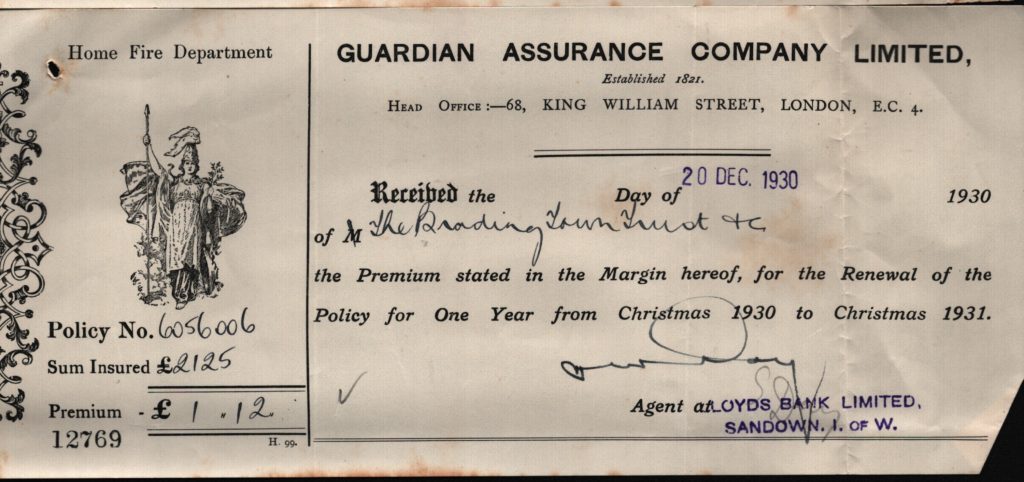 Home Fire Department
Policy No. 6056006
Sum Insured £2125
Premium - £ 1 . 12 .
12769
H. 99.
GUARDIAN ASSURANCE COMPANY LIMITED,
Established 1821.
HEAD OFFICE :—68, KING WILLIAM STREET, LONDON, E.C. 4.
Received the Day of 20 DEC. 1930 1930
of M The Brading Town Trust &c
the Premium stated in the Margin hereof, for the Renewal of the
Policy for One Year from Christmas 1930 to Christmas 1931.
Agent at LOYDS BANK LIMITED,
SANDOWN. I. OF W.